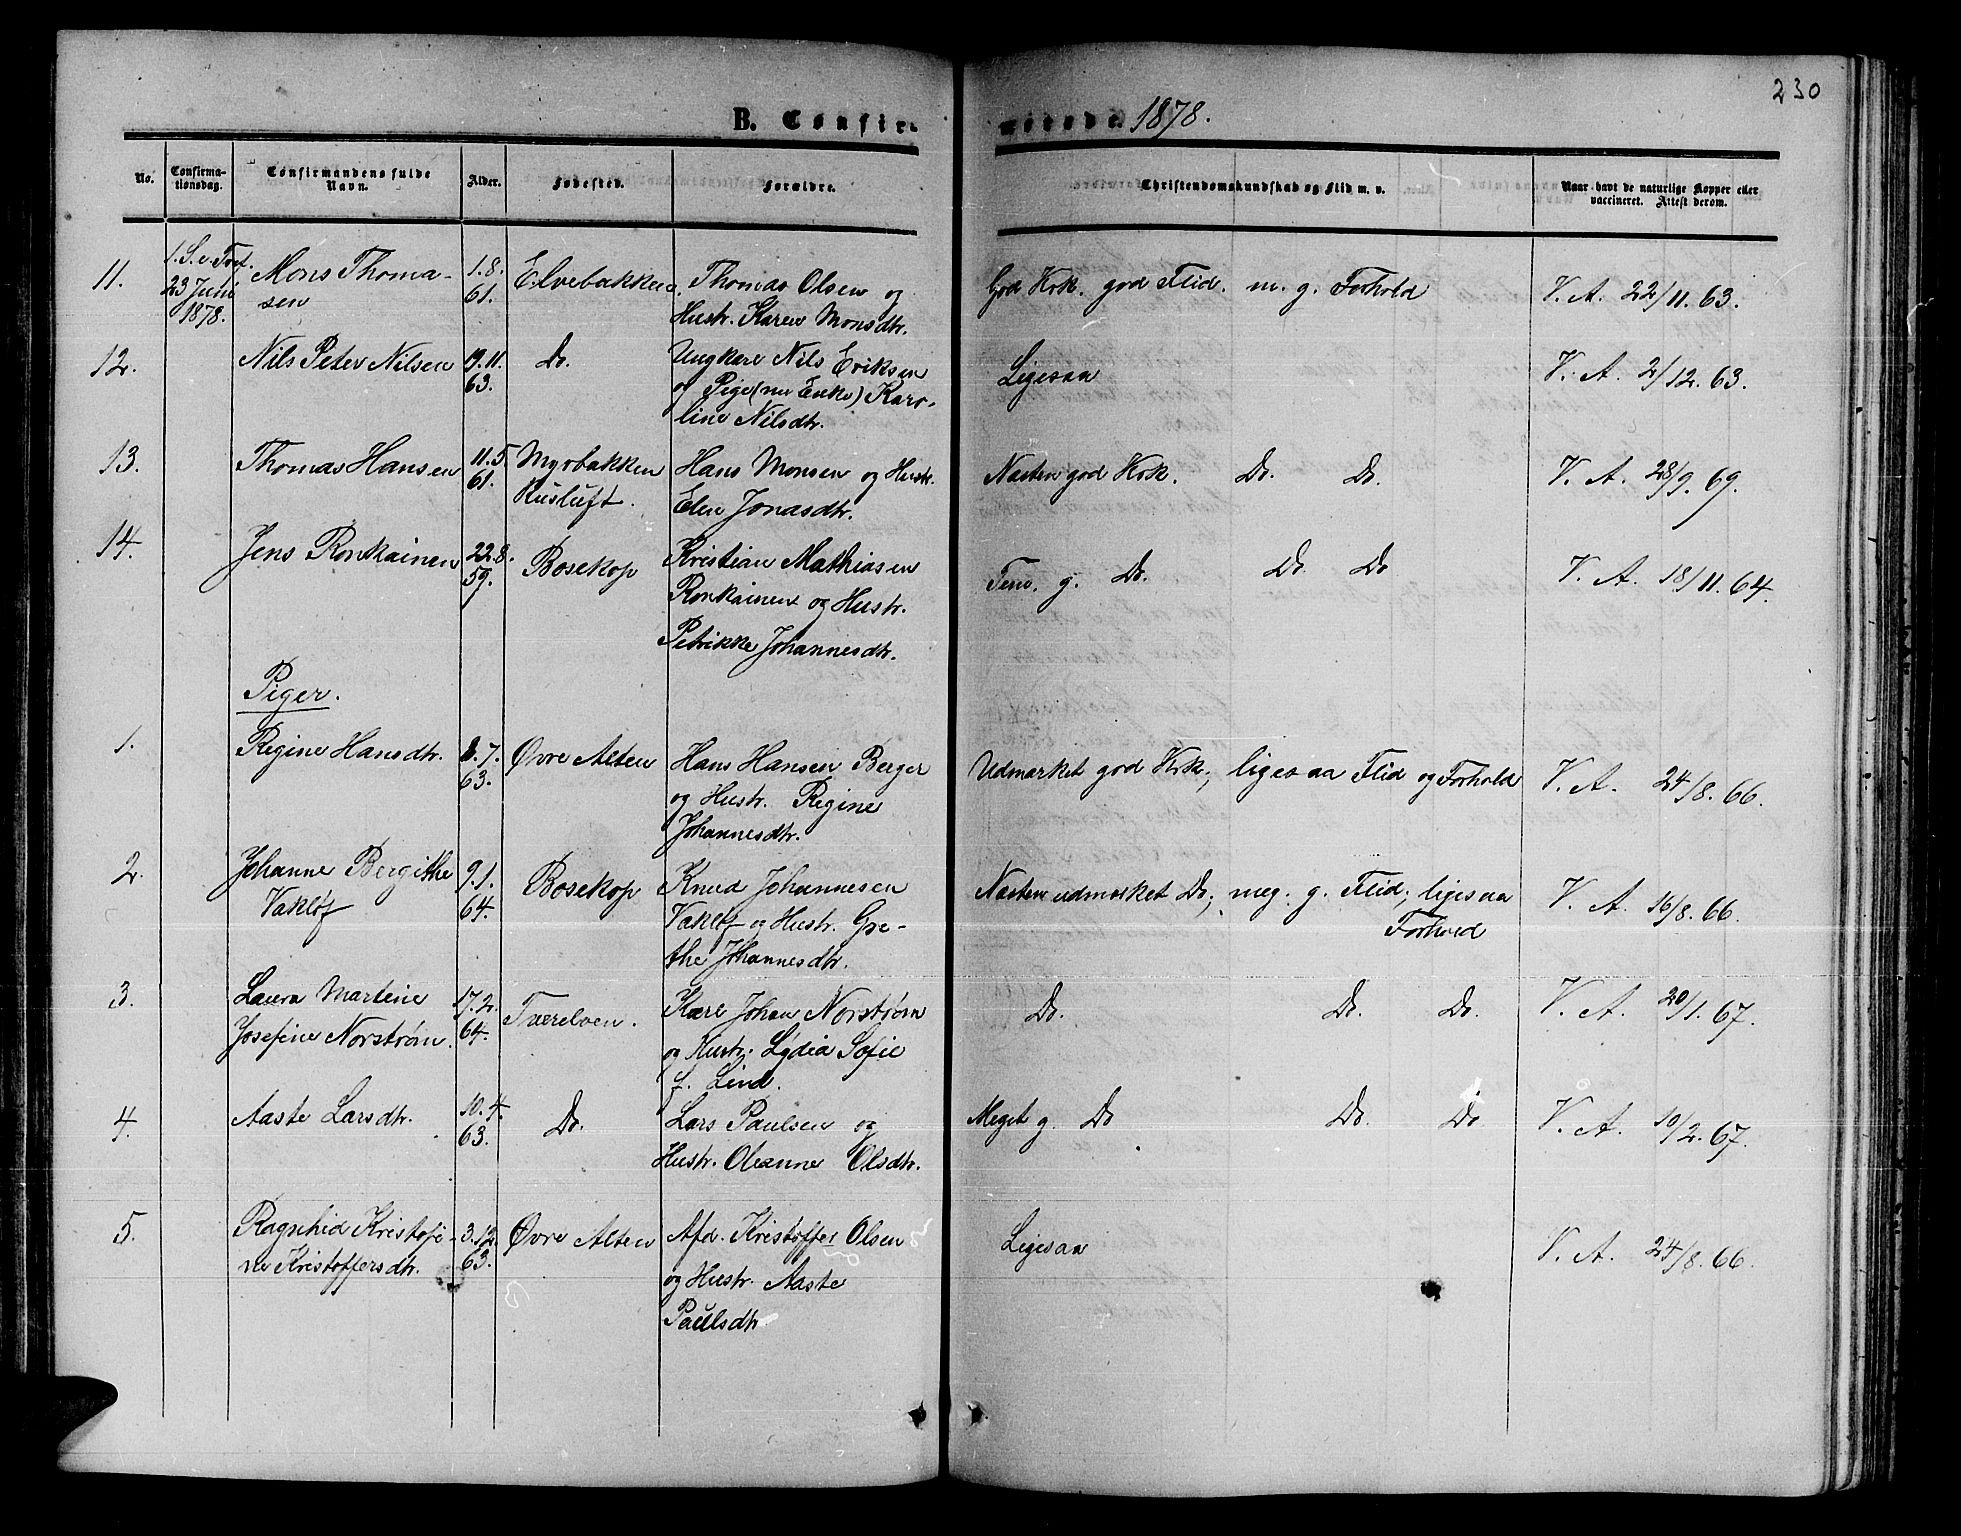 230
B. Confirmerede 1878.
No. Confirmationsdag. Confirmandens fulde Navn. Alder. Fødested. Forældre. Christendomskundskab og Flid m. v. Naar havt de naturlige Kopper eller vaccineret. Attest derom.
11. 1. S. e. Tref. 23 Juni 1878. Mons Thoma- 1.8. Elvebakken. Thomas Olsen og God Krk. god Flid. m. g. Forhold V. A. 22/11. 63.
sen 61. Hustr. Karen Monsdtr.
12. Nils Peter Nilsen 19.11. Do. Ungkarl Nils Eriksen Ligesaa V. A. 2/12. 63.
63. og Pige (nu Enke) Karo-
line Nilsdtr.
13. Thomas Hansen 11.5. Myrbakken Hans Monsen og Hustr. Næsten god Krk. Do. Do. V. A. 28/9. 69.
61. Rusluft. Elen Jonasdtr.
14. Jens Ronkainen 22.8. Bosekop Kristian Mathiasen Tem. g. Do. Do. Do V. A. 18/11. 64.
59. Ronkainen og Hustr.
Petrikke Johannesdtr.
Piger.
1. Regine Hansdtr. 8.7. Øvre Alten Hans Hansen Berger Udmærket god Krk.; ligesaa Flid og Forhold V. A. 24/8. 66.
63. og Hustr. Regine
Johannesdtr.
2. Johanne Bergithe 9.1. Bosekop Knud Johannesen Næsten udmærket Do.; meg. g. Flid; ligesaa V. A. 16/8. 66.
Vakløf 64. Vakløf og Hustr. Gre- Forhold
the Johannesdtr.
3. Laura Martine 17.2. Tverelven. Karl Johan Norstrøm Do. Do. Do. V. A. 20/1. 67.
Josefine Norstrøm. 64. og Hustr. Lydia Sofie
f. Lind.
4. Aaste Larsdtr. 10.4. Do. Lars Paulsen og Meget g. Do Do. Do V. A. 10/2. 67.
63. Hustr. Oleanne Olsdtr.
5. Ragnhid Kristofi- 3.12. Øvre Alten Afd. Kristoffer Olsen Ligesaa V. A. 24/8. 66.
ne Kristoffersdtr. 63. og Hustr. Aaste
Paulsdtr